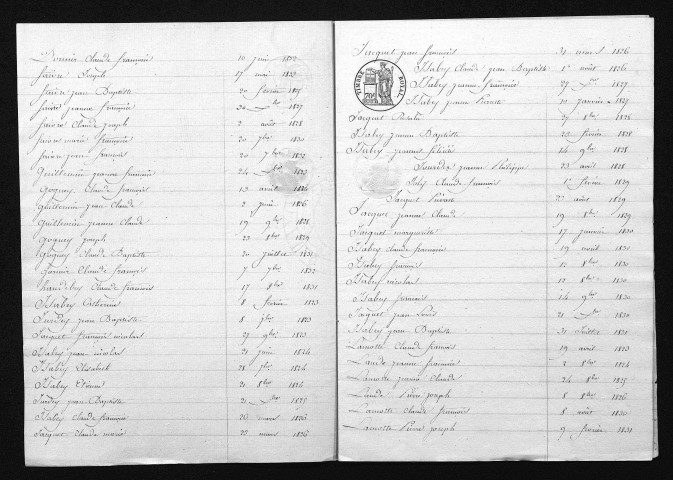 Claude françois 10 juin 1822
faivre Joseph 17 mai 1823
faivre jean Baptiste 20 février 1827
faivre jeanne françoise 24 1827
faivre Claude joseph 2 août 1828
faivre marie françoise 20 7bre 1830
faivre jean françois 20 7bre 1832
Guillemin jeanne françoise 24 1823
Gogney Claude françois 13 avril 1824
Guillemin jean Claude 2 juin 1826
Guillemin jeanne Claude 19 9bre 1828
Gogney joseph 23 8bre 1829
Gogney Claude Baptiste 20 juillet 1831
Garnier Claude françois 7 7bre 1832
Claude françois 17 8bre 1831
Isabey Catherine 8 février 1823
jean Baptiste 8 7bre 1823
Jacquet françois nicolas 27 9bre 1823
Isabey jean nicolas 21 juin 1824
Isabey Elisabeth 28 7bre 1824
Isabey Etienne 21 8bre 1824
jean Baptiste 21 1825
Isabey Claude françois 26 mars 1826
Jacquet Claude marie 23 mars 1826
Jacquet jean françois 31 mars 1826
Isabey Claude jean Baptiste 1er août 1826
Isabey jeanne françoise 27 1827
Isabey jeanne Pierrette 10 janvier 1827
Jacquet Rosalie 27 8bre 1828
Isabey jeanne Baptiste 23 février 1828
Isabey jeanne félicité 14 9bre 1828
jeanne Philippe 22 avril 1828
Claude françois 1er février 1829
Jacquet Pierrette 22 août 1829
Jacquet jeanne Claude 19 8bre 1829
Jacquet marguerite 17 janvier 1830
Isabey Claude françoise 19 avril 1830
Isabey françois 12 8bre 1830
Isabey nicolas 12 8bre 1830
Isabey françois 14 9bre 1830
Jacquet jean Louis 21 1830
Isabey jean Baptiste 31 juillet 1831
Lamotte Claude francois 19 avril 1823
Laude jeanne françoise 2 8bre 1824
Lamotte jeanne Claude 26 8bre 1825
Laude Pierre joseph 8 8bre 1826
Lamotte Claude françois 8 août 1830
Lamotte Pierre joseph 9 février 1831
TIMBRE ROYAL